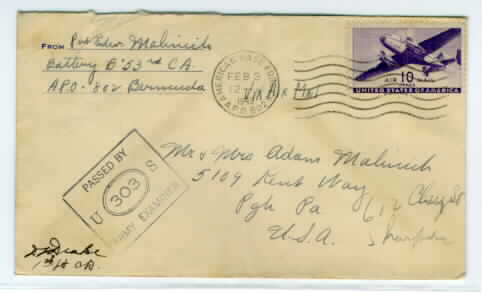 FROM Pvt Edw. Malinich
Battery B 53rd CA
APO-802 Bermuda
AMERICAN BASE FORCES
FEB 3
12
A.P.O. 802
VIA Air Mail
10
AIR MAIL
UNITED STATES OF AMERICA
PASSED BY
U 303 S
ARMY EXAMINER
Mr & Mrs Adam Malinich
5109 Kent Way
Pgh Pa
U.S.A.
612
1st Lt CA